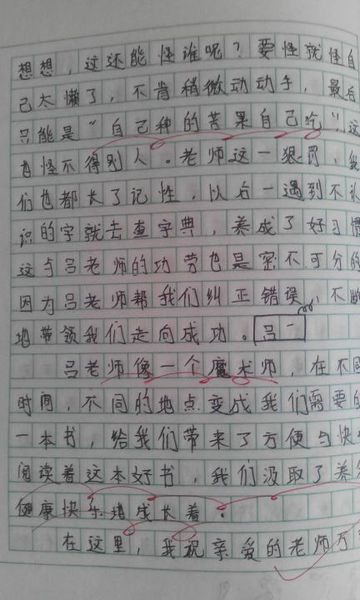 想想，这还能怪谁呢？要怪就怪自
己太懒了，不肯稍微动动手，最后
只能是“自己种的苦果自己吃”，这
也怪不得别人。老师这一狠罚，我
们也都长了记性，以后一遇到不认
识的字就去查字典，养成了好习惯
这与吕老师的功劳也是密不可分的
因为吕老师帮我们纠正错误，不断
地带领我们走向成功。吕一
吕老师像一个魔术师，在不同
时间，不同的地点变成我们需要的
一本书，给我们带来了方便与快
阅读着这本好书，我们汲取了养
健康快乐地成长着。
在这里，我祝亲爱的老师万